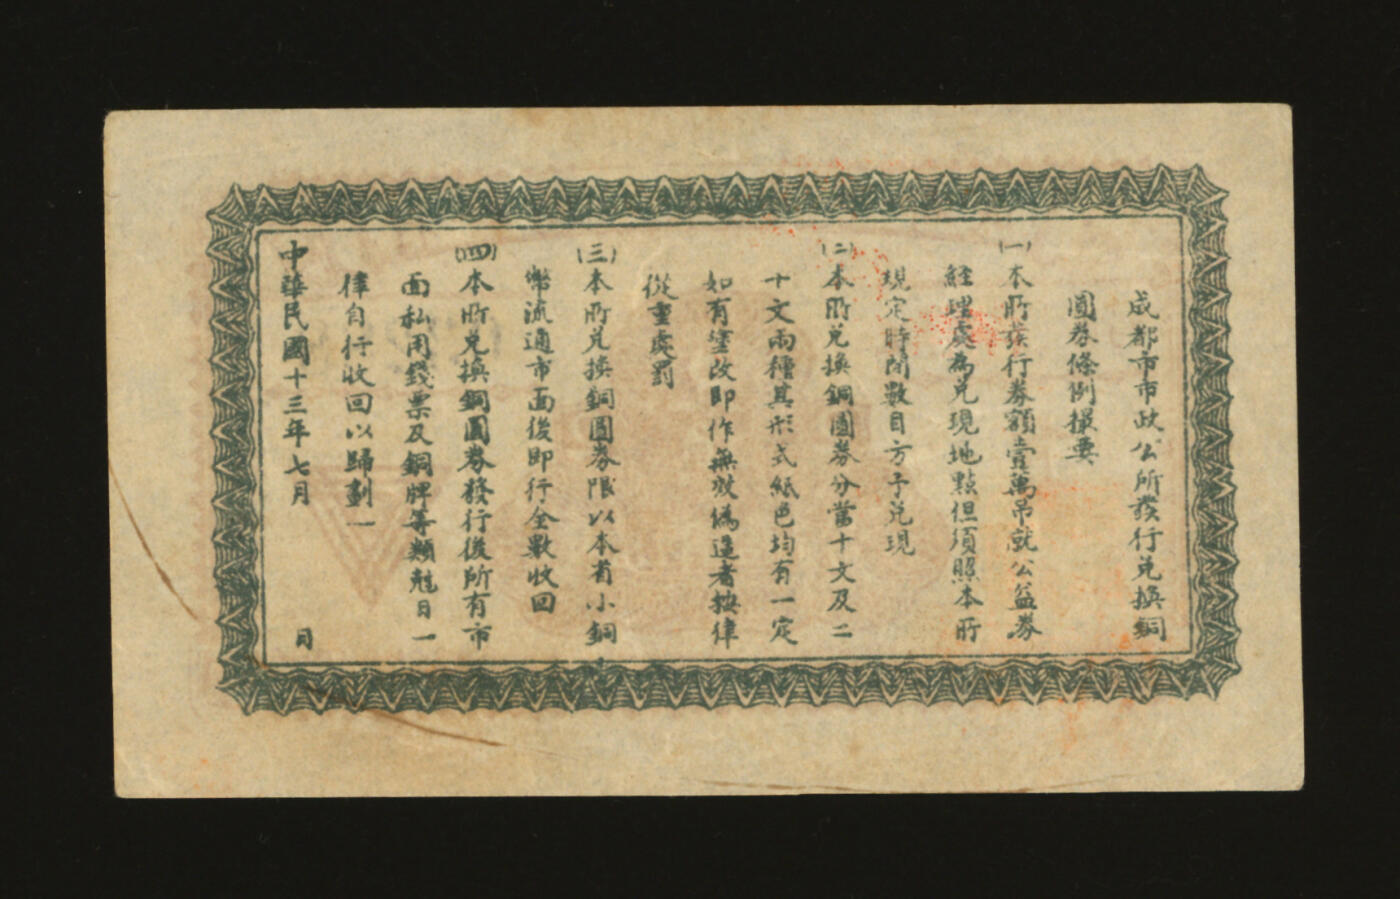 成都市市政公所發行兌換銅
圓券條例撮要
(一)本所發行券額壹萬吊就公益券
經理處為兌現地點但須照本所
規定時間數目方予兌現
(二)本所兌換銅圓券分當十文及二
十文兩種其形式紙色均有一定
如有塗改即作無效偽造者按律
從重處罰
(三)本所兌換銅圓券限以本省小銅
幣流通市面後即行全數收回
(四)本所兌換銅圓券發行後所有市
面私用錢票及銅牌等類尅日一
律自行收回以歸劃一
中華民國十三年七月 日